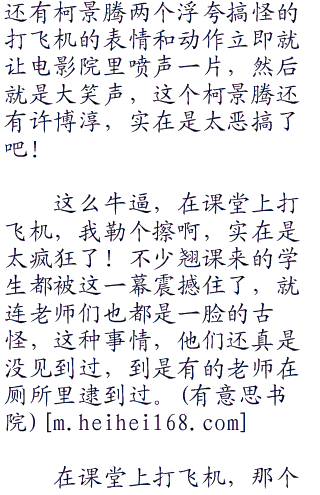 还有柯景腾两个浮夸搞怪的
打飞机的表情和动作立即就
让电影院里喷声一片，然后
就是大笑声，这个柯景腾还
有许博淳，实在是太恶搞了
吧！
这么牛逼，在课堂上打
飞机，我勒个擦啊，实在是
太疯狂了！不少翘课来的学
生都被这一幕震撼住了，就
连老师们也都是一脸的古
怪，这种事情，他们还真是
没见到过，到是有的老师在
厕所里逮到过。(有意思书
院)[m.heihei168.com]
在课堂上打飞机，那个